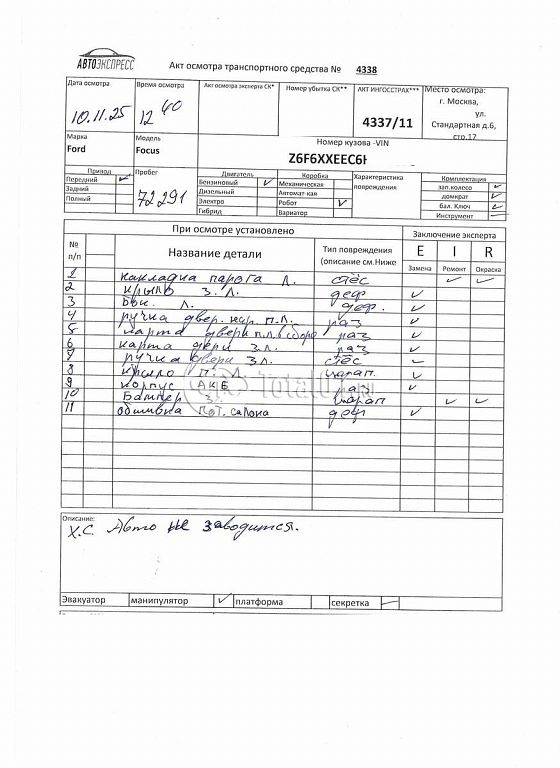 АВТОЭКСПРЕСС
Акт осмотра транспортного средства № 4338
Дата осмотра
10.11.25
Время осмотра
12 40
Акт осмотра эксперта СК*
Номер убытка СК**
АКТ ИНГОССТРАХ***
4337/11
Место осмотра:
г. Москва,
ул.
Стандартная д.6,
стр.17
Марка
Ford
Модель
Focus
Номер кузова -VIN
Z6F6XXEEC6
Привод
Передний
Задний
Полный
Пробег
72291
Двигатель
Бензиновый
Дизельный
Электро
Гибрид
Коробка
Механическая
Автомат кая
Робот
Вариатор
Характеристика
повреждения
Комплектация
зап.колесо
домкрат
бал. Ключ
Инструмент
При осмотре установлено
Заключение эксперта
№
п/п
Название детали
Тип повреждения
(описание см.Ниже
E I R
Замена Ремонт Окраска
1 накладка порога Л.
2 крыло З.Л. деф
3 Бок. Л. деф.
4 ручка двер. нар. П.Л. раз
5 карта двери П.Л. в сборе раз
6 карта двери З.Л. раз
7 ручка двери З.Л.
8 крыло П.Л. царап.
9 корпус АКБ раз
10 Бампер З. царап
11 обшивка пот. салона деф
Описание:
Х.С. Авто не заводится.
Эвакуатор манипулятор платформа секретка